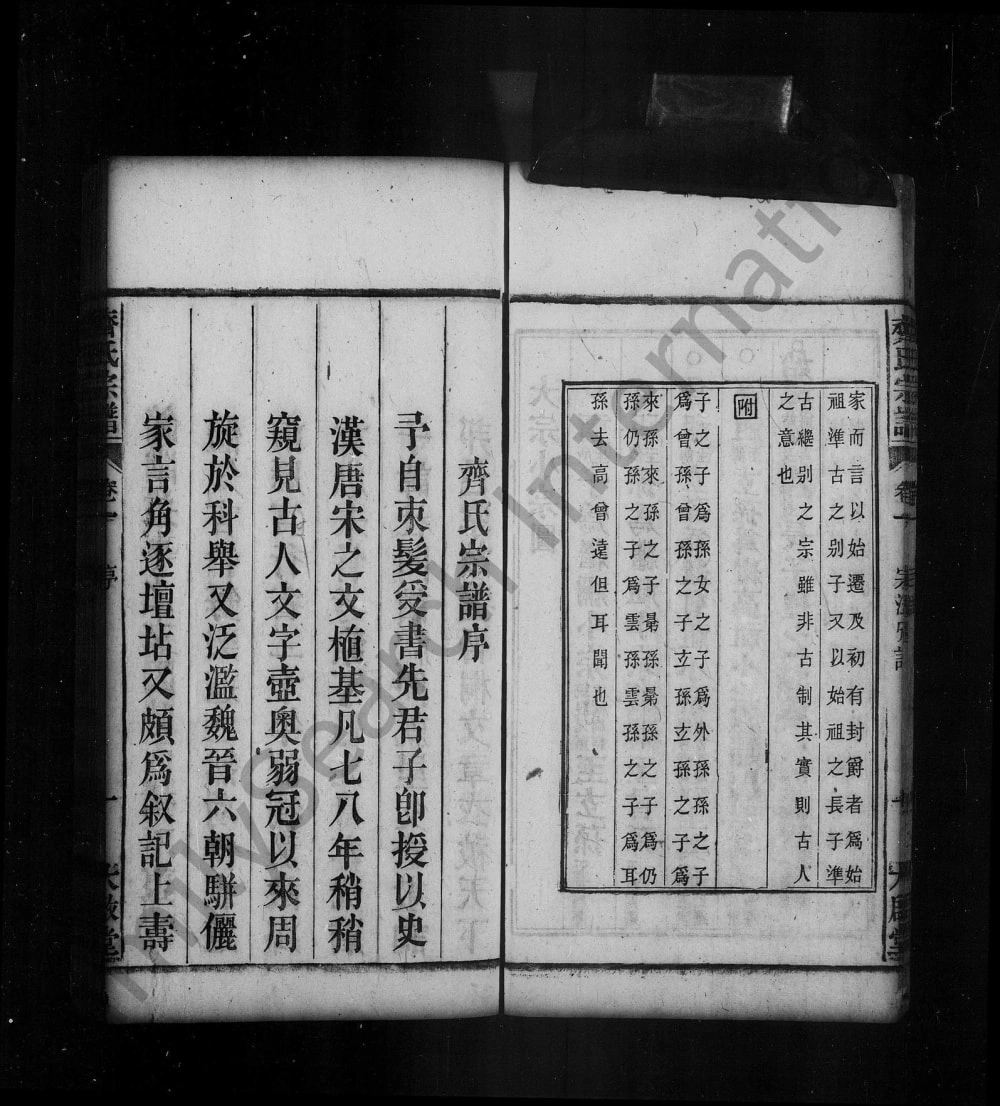 齊氏宗譜
卷一
家而言以始遷及初有封爵者為始
祖準古之别子又以始祖之長子準
古繼别之宗雖非古制其實則古人
之意也
附
子之子爲孫女之子爲外孫孫之子
爲曾孫曾孫之子玄孫玄孫之子爲
來孫來孫之子晜孫晜孫之子爲仍
孫仍孫之子爲雲孫雲孫之子爲耳
孫去高曾遠但耳聞也
齊氏宗譜序
予自束髮受書先君子卽授以史
漢唐宋之文植基凡七八年稍稍
窺見古人文字壺奥弱冠以來周
旋於科舉又泛濫魏晉六朝駢儷
家言角逐壇坫又頗爲叙記上壽
齊氏宗譜
卷一
序
一
Family International